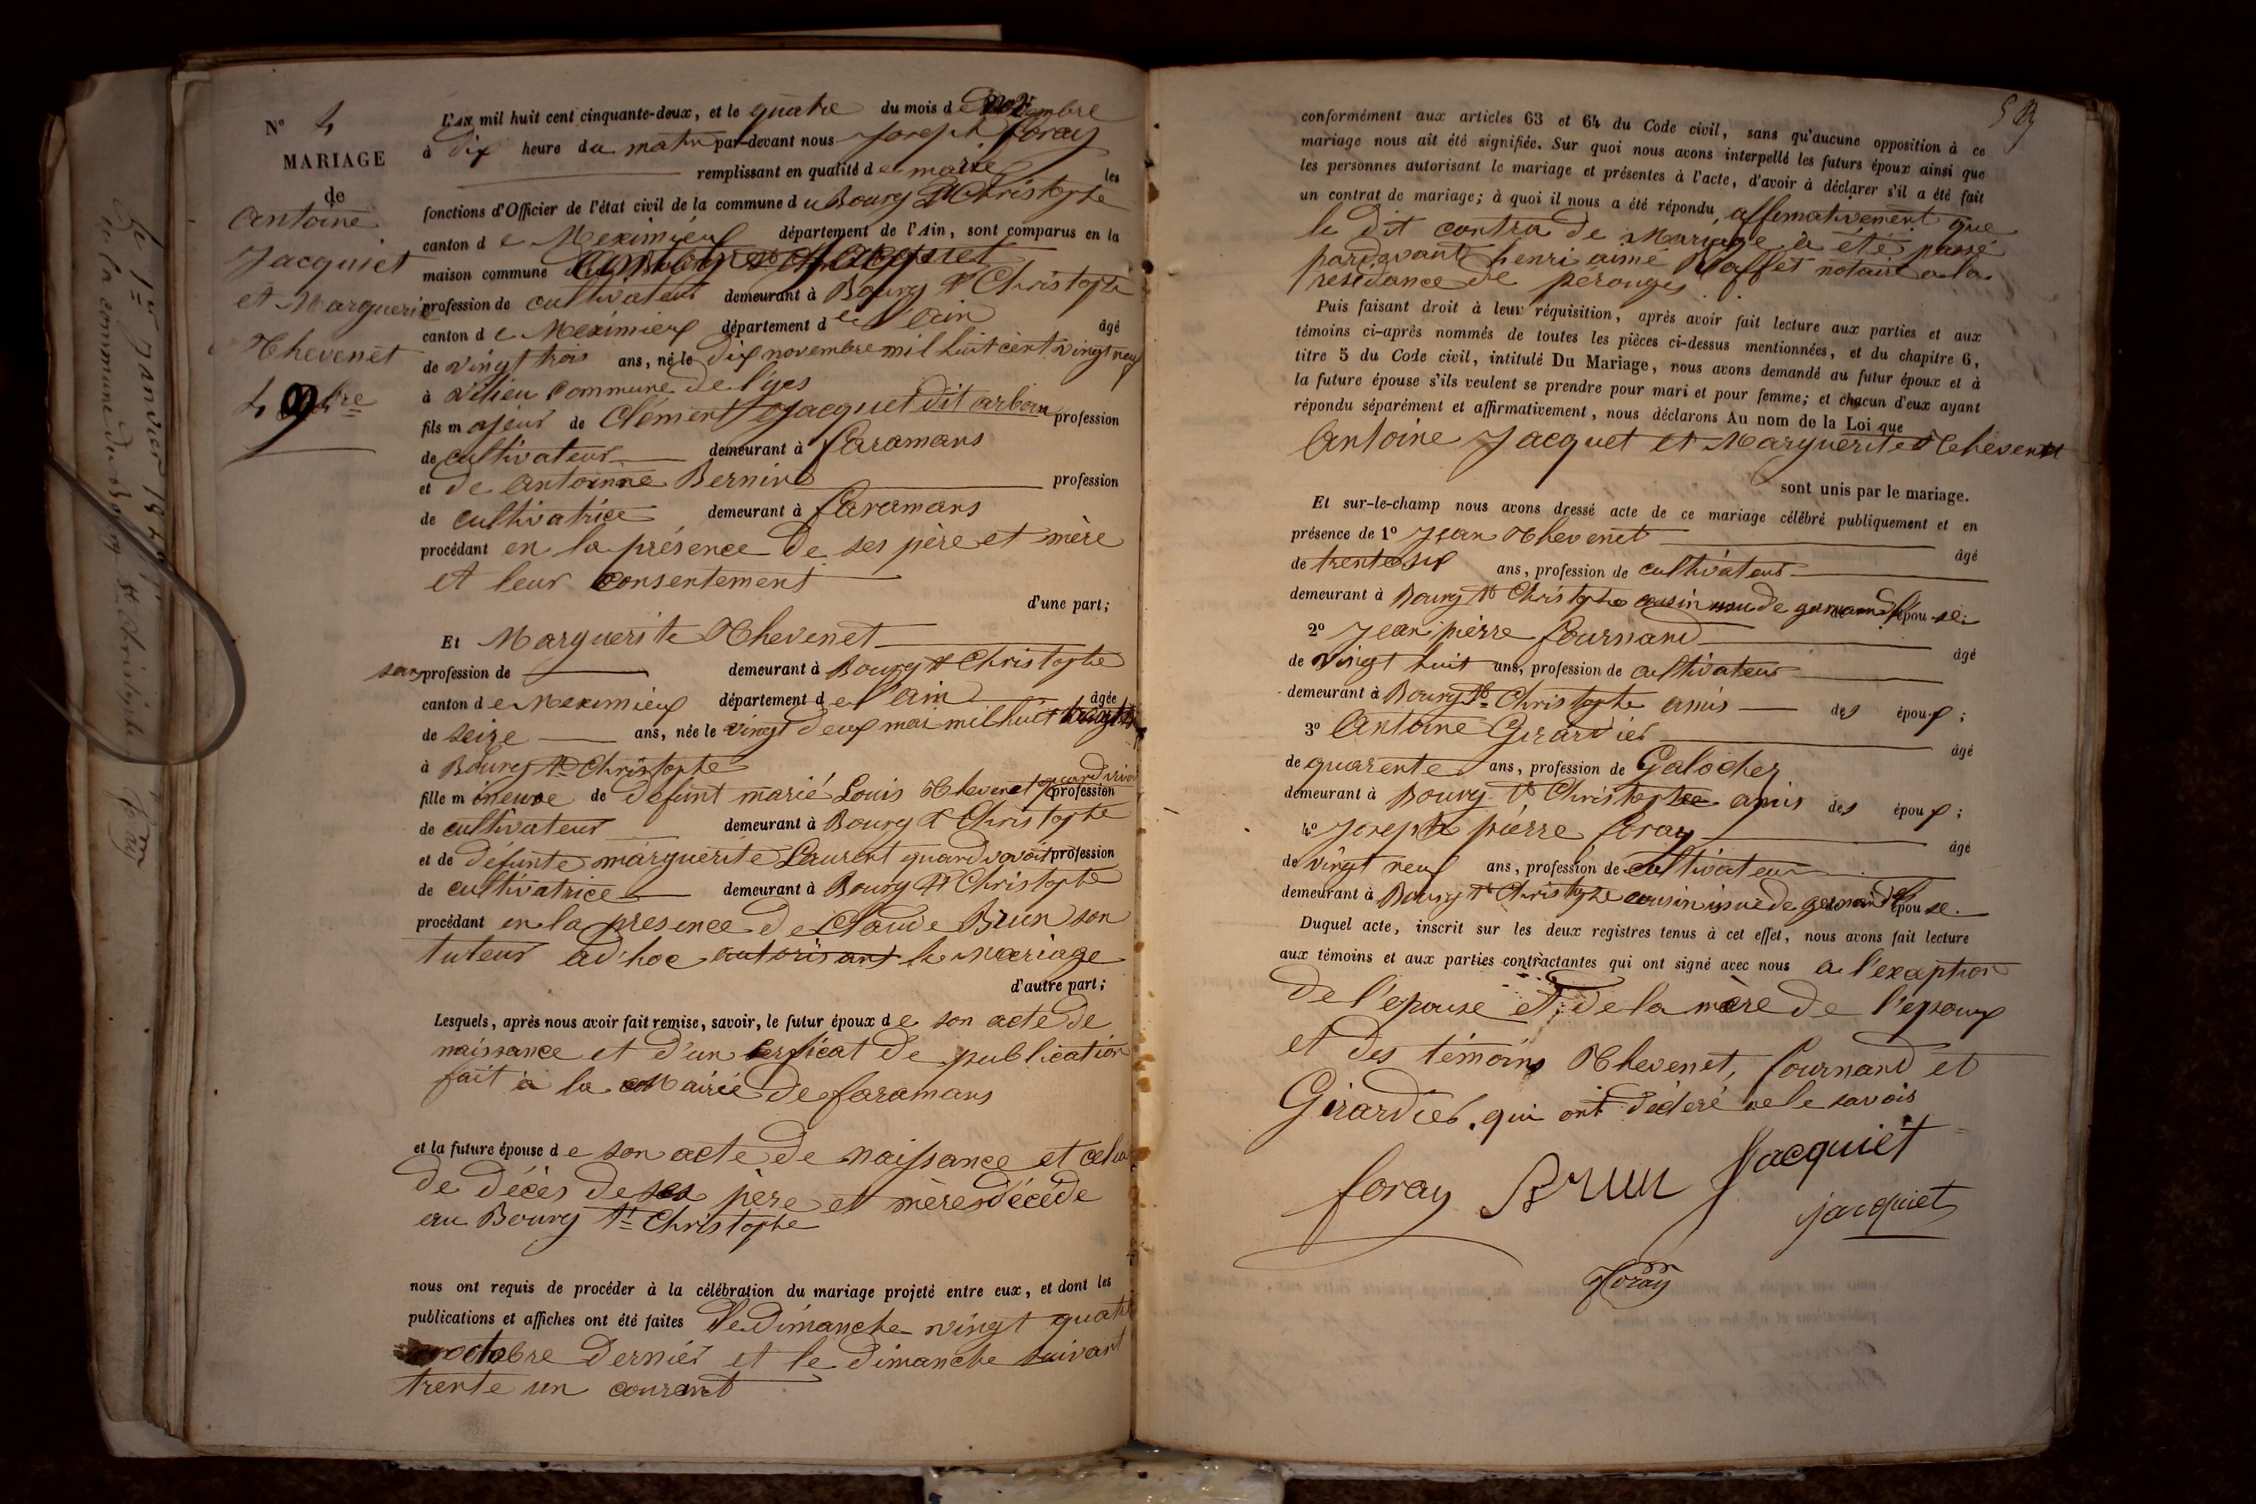 N° 4
MARIAGE
de
Antoine
Jacquiet
et Marguerite
Thevenet
4 9bre
L'AN mil huit cent cinquante-deux, et le quatre du mois de Novembre
à dix heure du matin par-devant nous Joseph foray
remplissant en qualité de maire les
fonctions d'Officier de l'état civil de la commune du Bourg St Christophe
canton de Meximieux département de l'Ain, sont comparus en la
maison commune Antoine Jacquiet
profession de cultivateur demeurant à Bourg St Christophe
canton de Meximieux département de l'ain âgé
de vingt trois ans, né le dix novembre mil huit cent vingt neuf
à commune de
fils majeur de Clément Jacquet dit arban profession
de cultivateur demeurant à faramans
et de Antoinne Bernin profession
de cultivatrice demeurant à faramans
procédant en la présence de ses père et mère
et leur consentement
d'une part;
Et Marguerite Thevenet
sans profession de demeurant à Bourg St Christophe
canton de Meximieux département de l'ain âgée
de seize ans, née le vingt deux mai mil huit
à Bourg St Christophe
fille mineure de defunt marié Louis Thevenet quand vivoit profession
de cultivateur demeurant à Bourg St Christophe
et de défunte marguerite Laurent quand vivoit profession
de cultivatrice demeurant à Bourg St Christophe
procédant en la presence de Claude Brun son
tuteur ad'hoc autorisant le mariage
d'autre part;
Lesquels, après nous avoir fait remise, savoir, le futur époux de son acte de
naissance et d'un cerficat de publication
fait à la Mairie de faramans
et la future épouse de son acte de naissance et celui
de décès de ses père et mère décéde
au Bourg St Christophe
nous ont requis de procéder à la célébration du mariage projeté entre eux, et dont les
publications et affiches ont été faites le Dimanche vingt quatre
octobre dernier et le dimanche suivant
trente un courant
conformément aux articles 63 et 64 du Code civil, sans qu'aucune opposition à ce
mariage nous ait été signifiée. Sur quoi nous avons interpellé les futurs époux ainsi que
les personnes autorisant le mariage et présentes à l'acte, d'avoir à déclarer s'il a été fait
un contrat de mariage; à quoi il nous a été répondu, affirmativement que
le dit contra de Mariage a été passé
pardavant henri aimé notaire a la
residance de pérouges
Puis faisant droit à leur réquisition, après avoir fait lecture aux parties et aux
témoins ci-après nommés de toutes les pièces ci-dessus mentionnées, et du chapitre 6,
titre 5 du Code civil, intitulé Du Mariage, nous avons demandé au futur époux et à
la future épouse s'ils veulent se prendre pour mari et pour femme; et chacun d'eux ayant
répondu séparément et affirmativement, nous déclarons Au nom de la Loi que
Antoine Jacquet et Marguerite Thévenet
sont unis par le mariage.
Et sur-le-champ nous avons dressé acte de ce mariage célébré publiquement et en
présence de 1° Jean Thevenet âgé
de trente six ans, profession de cultivateur
demeurant à Bourg St Christophe cousin issu de germain de l'épouse.
2° Jean pièrre fournand âgé
de vingt huit ans, profession de cultivateur
demeurant à Bourg St Christophe amis des époux;
3° Antoine Girardier âgé
de quarente ans, profession de Galocher
demeurant à Bourg St Christophe amis des époux;
4° Joseph pièrre foray âgé
de vingt neuf ans, profession de cultivateur
demeurant à Bourg St Christophe cousin issue de germain de l'épouse.
Duquel acte, inscrit sur les deux registres tenus à cet effet, nous avons fait lecture
aux témoins et aux parties contractantes qui ont signé avec nous a l'exaption
de l'epouse et de la mère de l'epoux
et des témoins Thevenet, fournand et
Girardier. qui ont décleré ne le savoir
foray Brun Jacquiet
jacquiet
foray